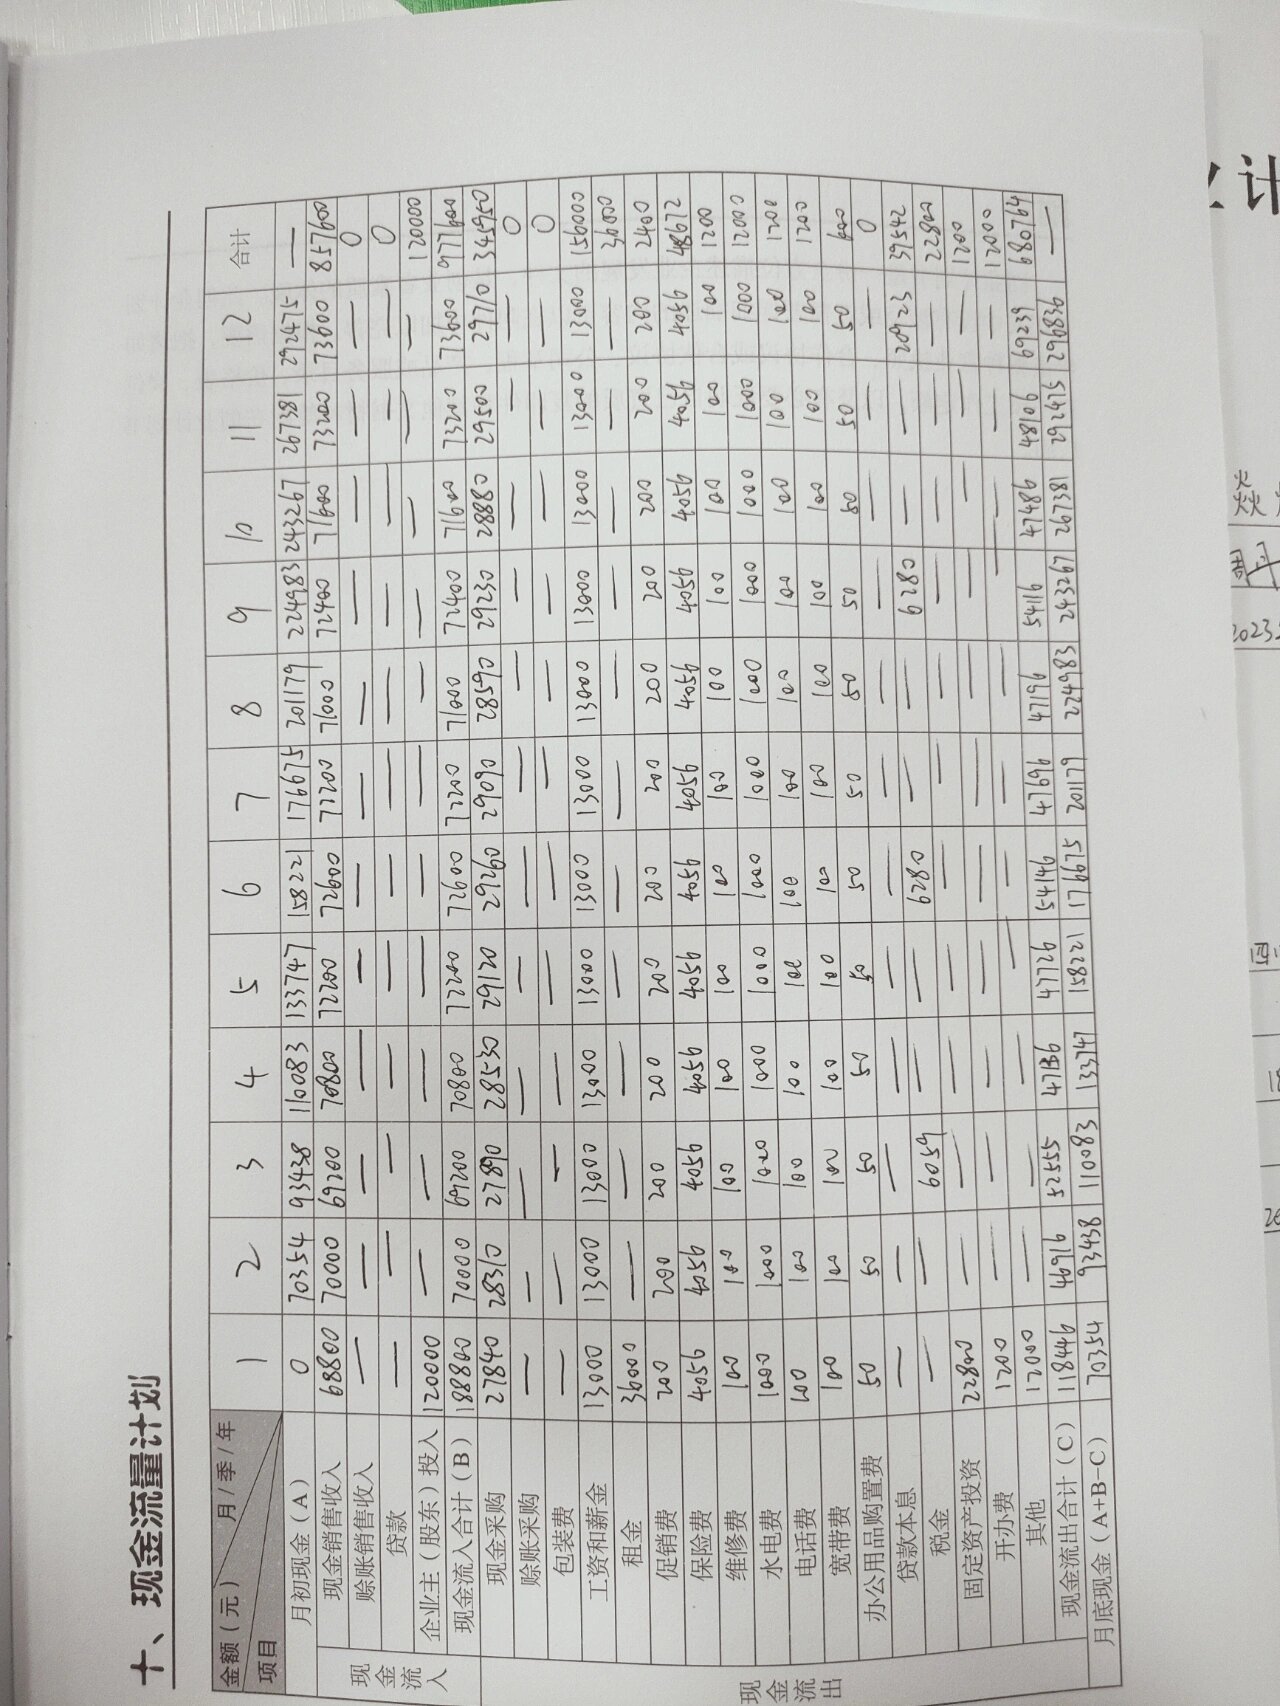 十、现金流量计划
金额（元） 月/季/年 项目 1 2 3 4 5 6 7 8 9 10 11 12 合计
月初现金（A） 0 70354 93438 110083 133747 158221 176675 201179 224983 243267 267381 292475 —
现金流入
现金销售收入 68800 70000 69200 70800 72200 72600 72200 71000 72400 71600 73200 73600 857600
赊账销售收入 — — — — — — — — — — — — 0
贷款 — — — — — — — — — — — — 0
企业主（股东）投入 120000 — — — — — — — — — — — 120000
现金流入合计（B） 188800 70000 69200 70800 72200 72600 72200 71000 72400 71600 73200 73600 977600
现金流出
现金采购 27840 28310 27890 28530 29120 29260 29090 28590 29230 28880 29500 29710 345950
赊账采购 — — — — — — — — — — — — 0
包装费 — — — — — — — — — — — — 0
工资和薪金 13000 13000 13000 13000 13000 13000 13000 13000 13000 13000 13000 13000 156000
租金 36000 — — — — — — — — — — — 36000
促销费 200 200 200 200 200 200 200 200 200 200 200 200 2400
保险费 4056 4056 4056 4056 4056 4056 4056 4056 4056 4056 4056 4056 48672
维修费 100 100 100 100 100 100 100 100 100 100 100 100 1200
水电费 1000 1000 1000 1000 1000 1000 1000 1000 1000 1000 1000 1000 12000
电话费 100 100 100 100 100 100 100 100 100 100 100 100 1200
宽带费 100 100 100 100 100 100 100 100 100 100 100 100 1200
办公用品购置费 50 50 50 50 50 50 50 50 50 50 50 50 600
贷款本息 — — — — — — — — — — — — 0
税金 — — 6059 — — 6280 — — 6280 — — 20923 39542
固定资产投资 22800 — — — — — — — — — — — 22800
开办费 1200 — — — — — — — — — — — 1200
其他 12000 — — — — — — — — — — — 12000
现金流出合计（C） 118446 46916 52555 47136 47726 54146 47696 47196 54116 47486 48106 69239 680764
月底现金（A+B-C） 70354 93438 110083 133747 158221 176675 201179 224983 243267 267381 292475 296836 —
计
2023